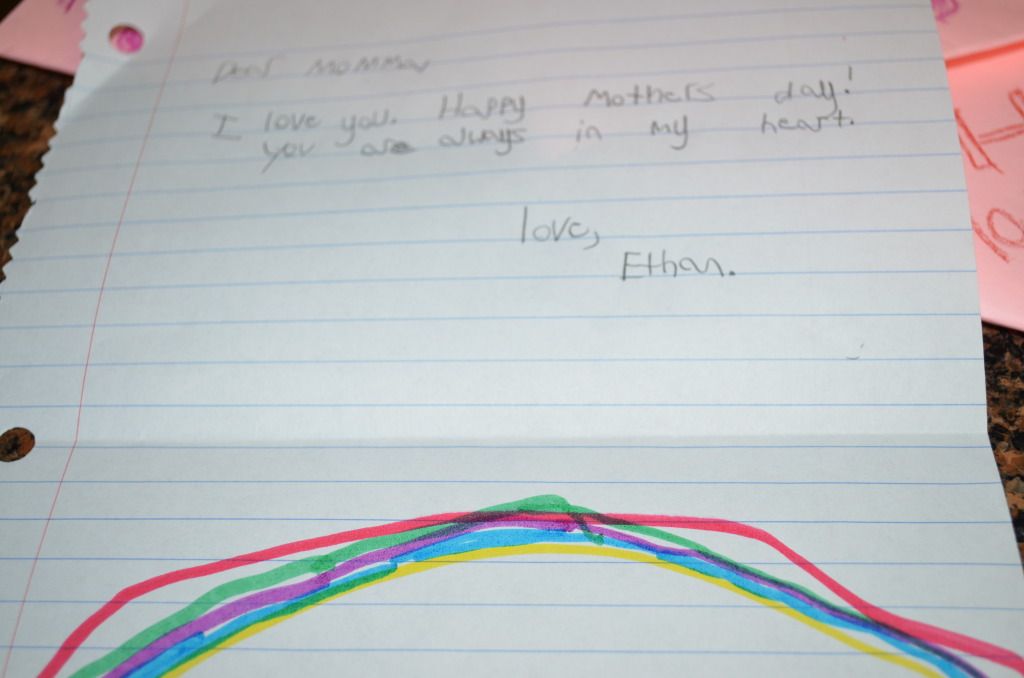 Dear Momma
I love you. Happy Mothers day!
you are always in my heart.
love,
Ethan.